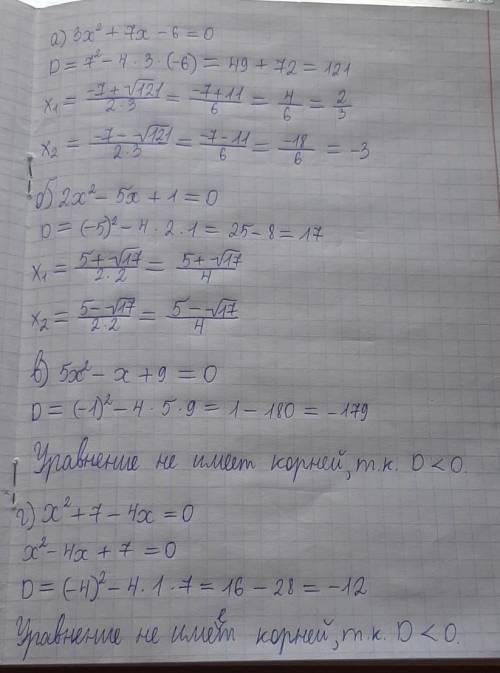 а) 3x² + 7x − 6 = 0
D = 7² − 4 · 3 · (−6) = 49 + 72 = 121
x₁ = (−7 + √121)/(2·3) = (−7+11)/6 = 4/6 = 2/3
x₂ = (−7 − √121)/(2·3) = (−7−11)/6 = −18/6 = −3
б) 2x² − 5x + 1 = 0
D = (−5)² − 4 · 2 · 1 = 25 − 8 = 17
x₁ = (5+√17)/(2·2) = (5+√17)/4
x₂ = (5−√17)/(2·2) = (5−√17)/4
в) 5x² − x + 9 = 0
D = (−1)² − 4 · 5 · 9 = 1 − 180 = −179
Уравнение не имеет корней, т.к. D < 0.
г) x² + 7 − 4x = 0
x² − 4x + 7 = 0
D = (−4)² − 4 · 1 · 7 = 16 − 28 = −12
Уравнение не имеет корней, т.к. D < 0.